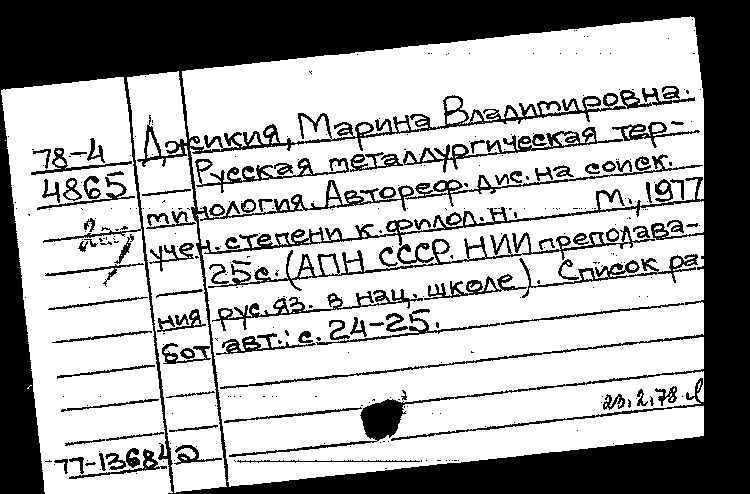 78-4
4865
Джикия, Марина Владимировна.
Русская металлургическая тер-
минология. Автореф. дис. на соиск.
учен. степени к. филол. н. М., 1977
25с. (АПН СССР. НИИ преподава-
ния рус. яз. в нац. школе). Список ра-
бот авт.: с. 24-25.
23.2.78
77-13684